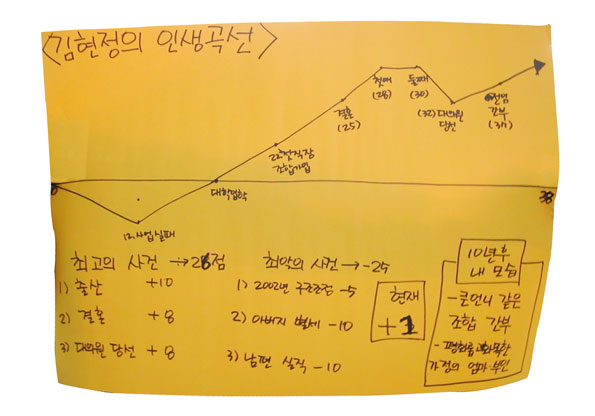 <김현정의 인생곡선>
첫째
(28)
둘째
(30)
결혼
(25)
(32) 대의원
당선
전임
간부
(37)
22 첫직장
조합가입
대학입학
38
12. 사업실패
최고의 사건 → 26점
1) 출산 +10
2) 결혼 +8
3) 대의원 당선 +8
최악의 사건 → -25
1) 2002년 구조조정 -5
2) 아버지 별세 -10
3) 남편 실직 -10
현재
+1
10년후
내 모습
- 큰언니 같은
조합 간부
- 평화롭고 화목한
가정의 엄마 부인